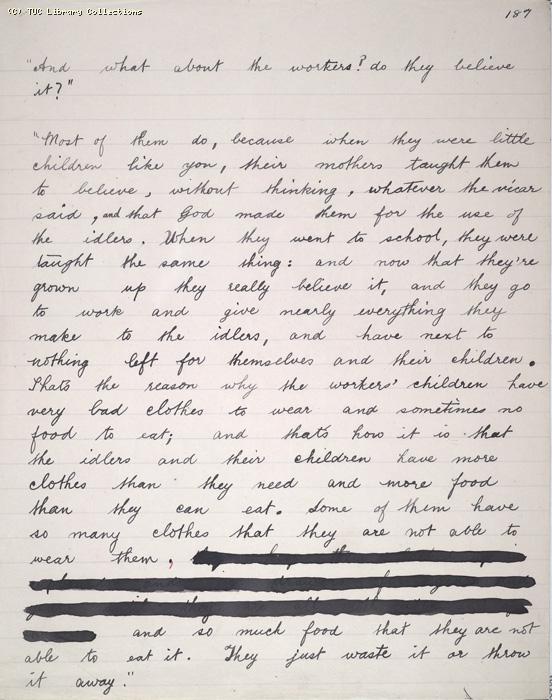 (C) TUC Library Collections
187
"And what about the workers? do they believe
it?"
"Most of them do, because when they were little
children like you, their mothers taught them
to believe, without thinking, whatever the vicar
said, and that God made them for the use of
the idlers. When they went to school, they were
taught the same thing: and now that they're
grown up they really believe it, and they go
to work and give nearly everything they
make to the idlers, and have next to
nothing left for themselves and their children.
Thats the reason why the workers' children have
very bad clothes to wear and sometimes no
food to eat; and thats how it is that
the idlers and their children have more
clothes than they need and more food
than they can eat. Some of them have
so many clothes that they are not able to
wear them,
and so much food that they are not
able to eat it. They just waste it or throw
it away."